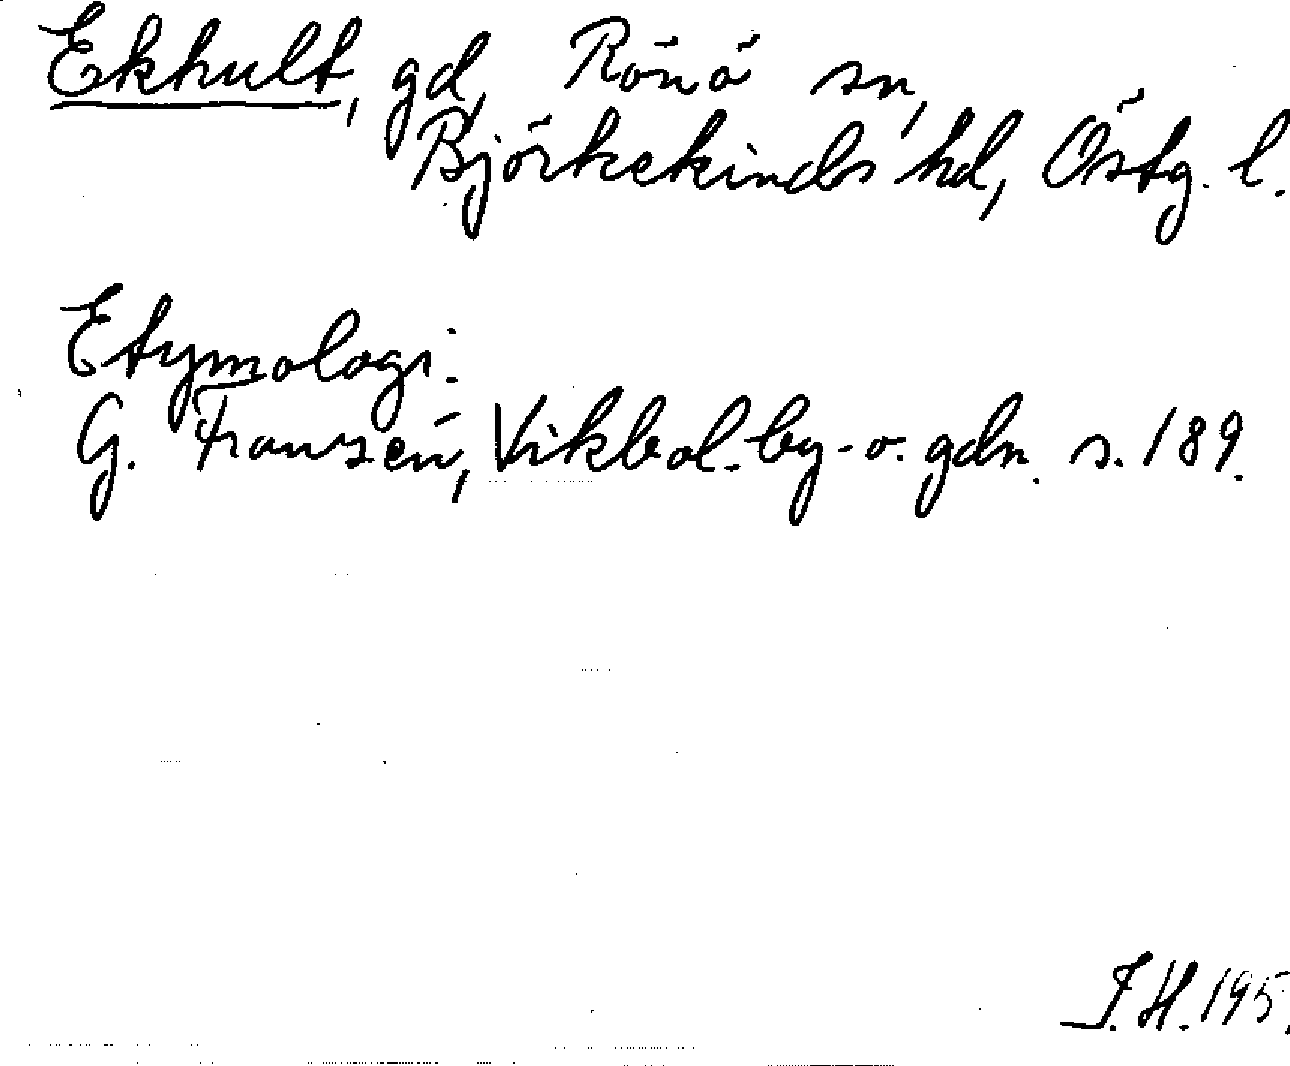 Ekhult, gd, Rönö sn,
Björkekinds hd, Östg. l.
Etymologi:
G. Franzén, Vikbol. by- o. gdn. s. 189.
I.H. 195